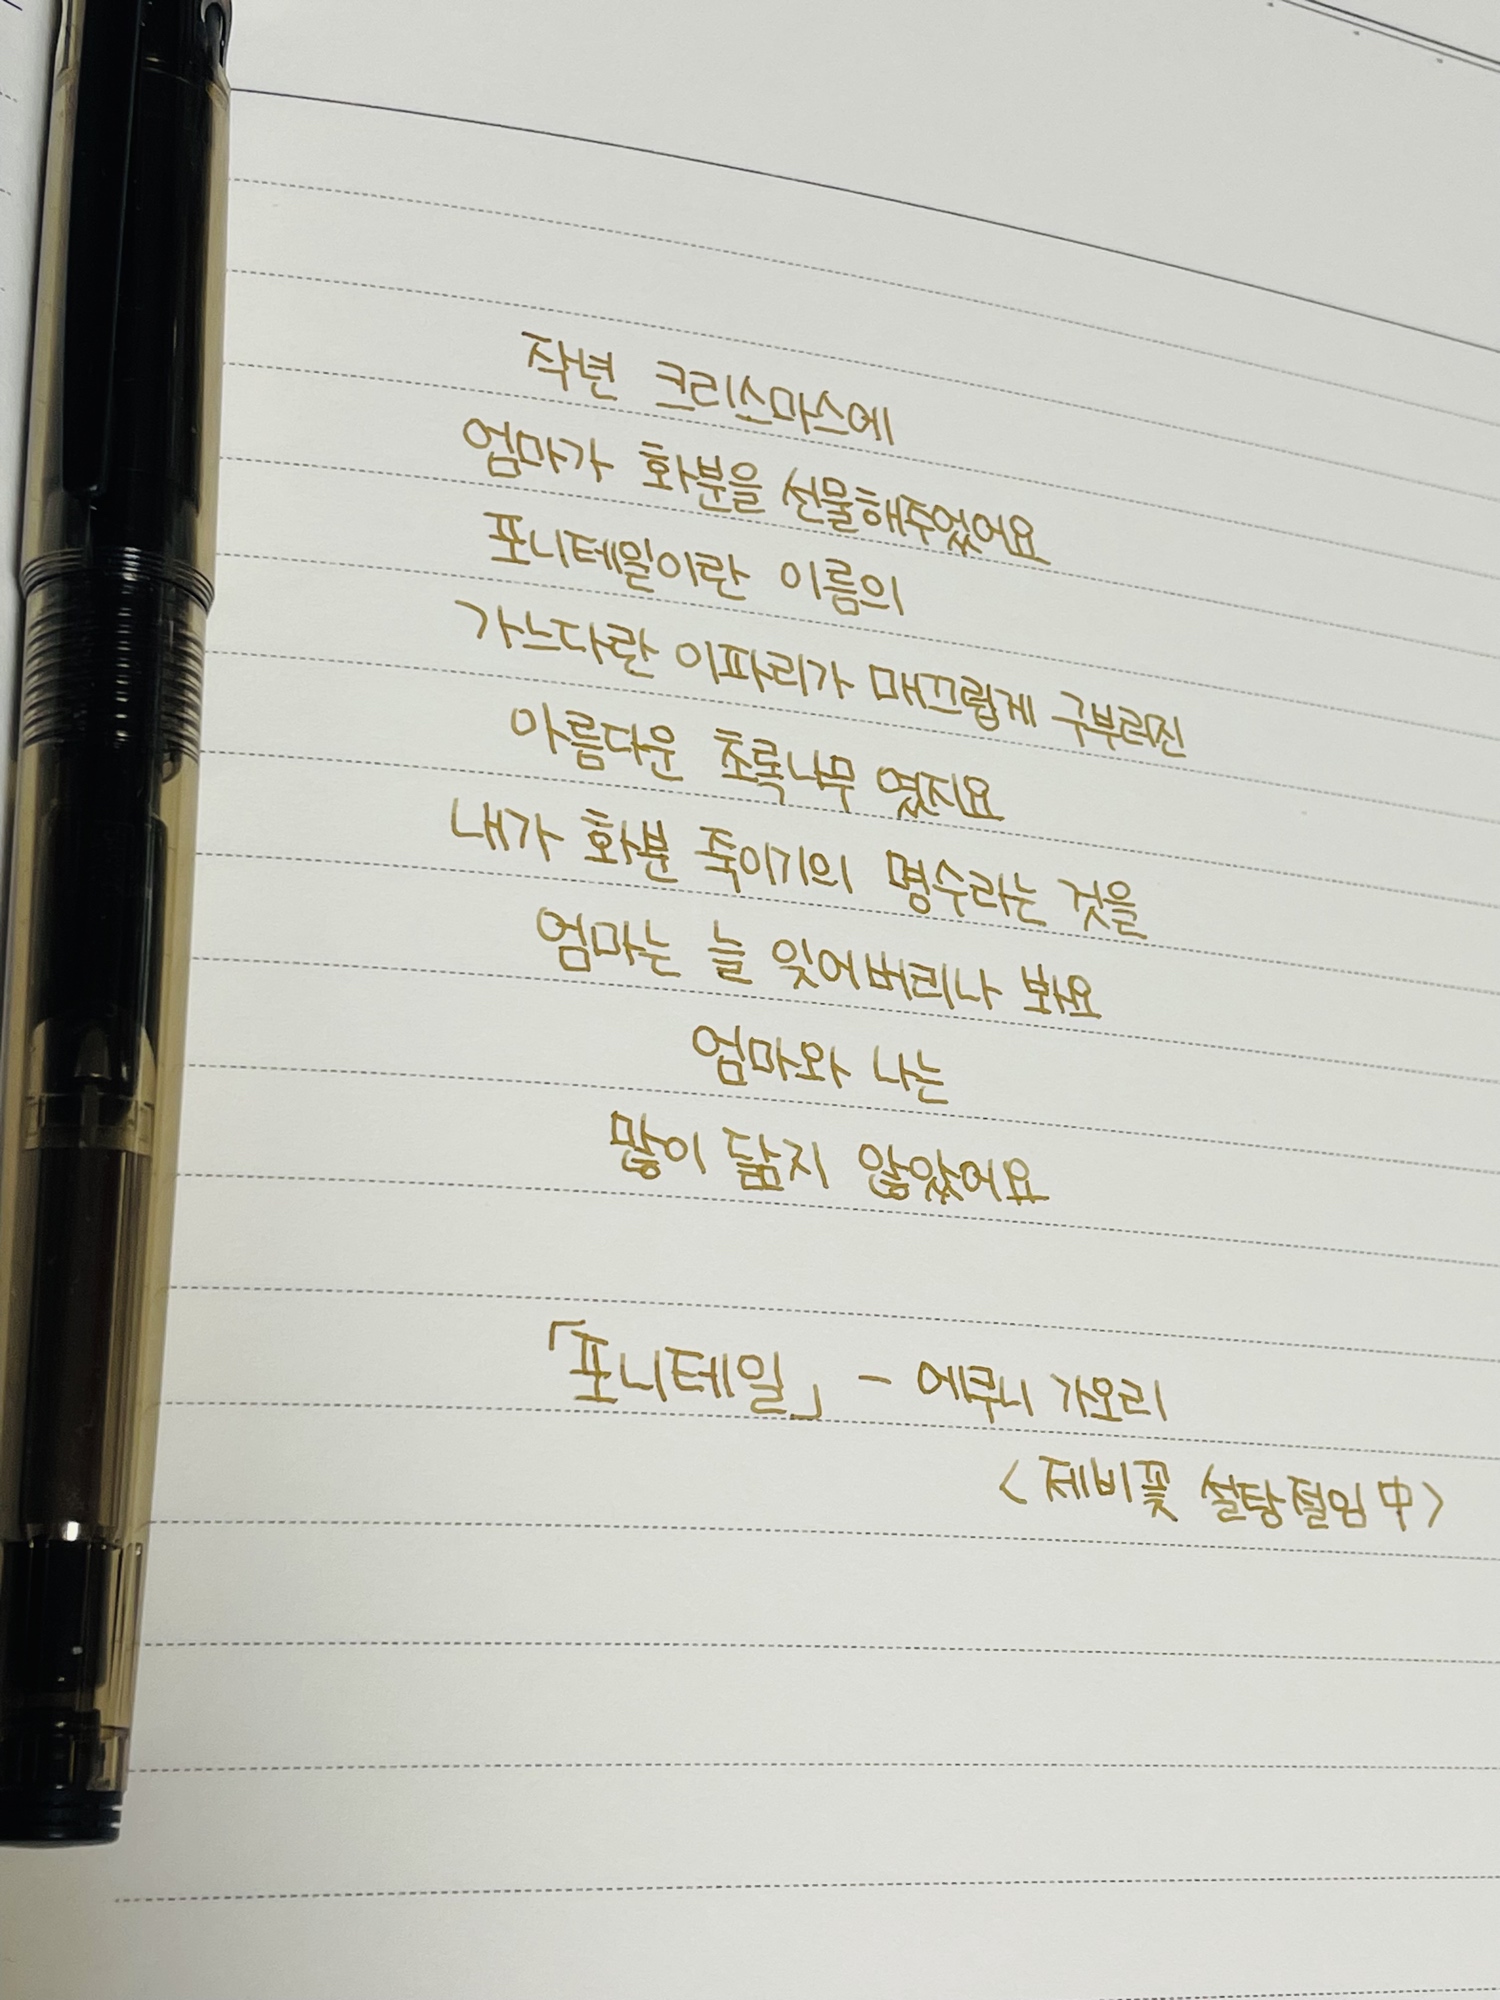 작년 크리스마스에
엄마가 화분을 선물해주었어요
포니테일이란 이름의
가느다란 이파리가 매끄럽게 구부러진
아름다운 초록나무 였지요
내가 화분 죽이기의 명수라는 것을
엄마는 늘 잊어버리나 봐요
엄마와 나는
많이 닮지 않았어요
「포니테일」 - 에쿠니 가오리
<제비꽃 설탕절임 中>